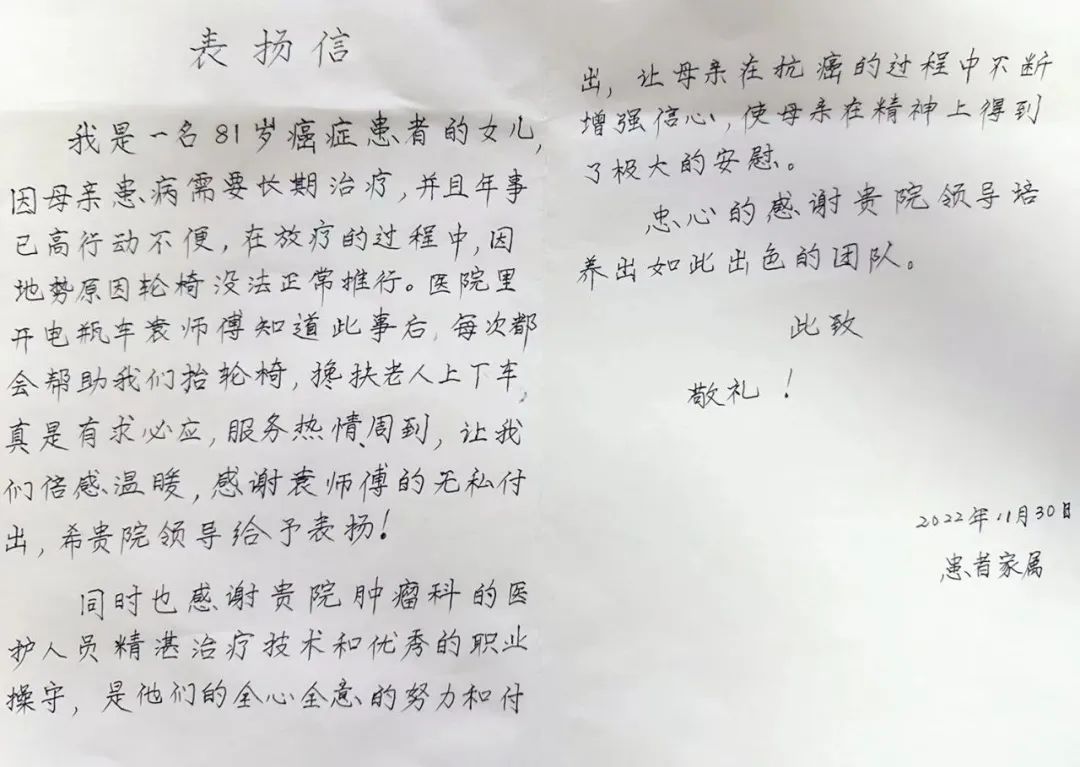 表扬信
我是一名81岁癌症患者的女儿,
因母亲患病需要长期治疗,并且年事
已高行动不便,在放疗的过程中,因
地势原因轮椅没法正常推行。医院里
开电瓶车袁师傅知道此事后,每次都
会帮助我们抬轮椅,搀扶老人上下车,
真是有求必应,服务热情、周到,让我
们倍感温暖,感谢袁师傅的无私付
出,希贵院领导给予表扬!
同时也感谢贵院肿瘤科的医
护人员精湛治疗技术和优秀的职业
操守,是他们的全心全意的努力和付
出,让母亲在抗癌的过程中不断
增强信心,使母亲在精神上得到
了极大的安慰。
忠心的感谢贵院领导培
养出如此出色的团队。
此致
敬礼!
2022年11月30日
患者家属